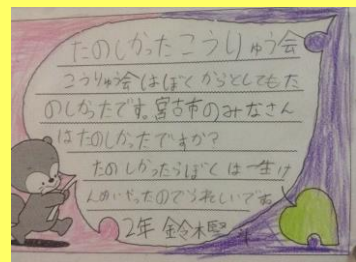 たのしかったこうりゅう会
こうりゅう会はぼくからとしてもた
のしかったです。宮古市のみなさん
はたのしかったですか?
たのしかったらぼくは一生け
んめいやったのでうれしいです
2年 鈴木賢